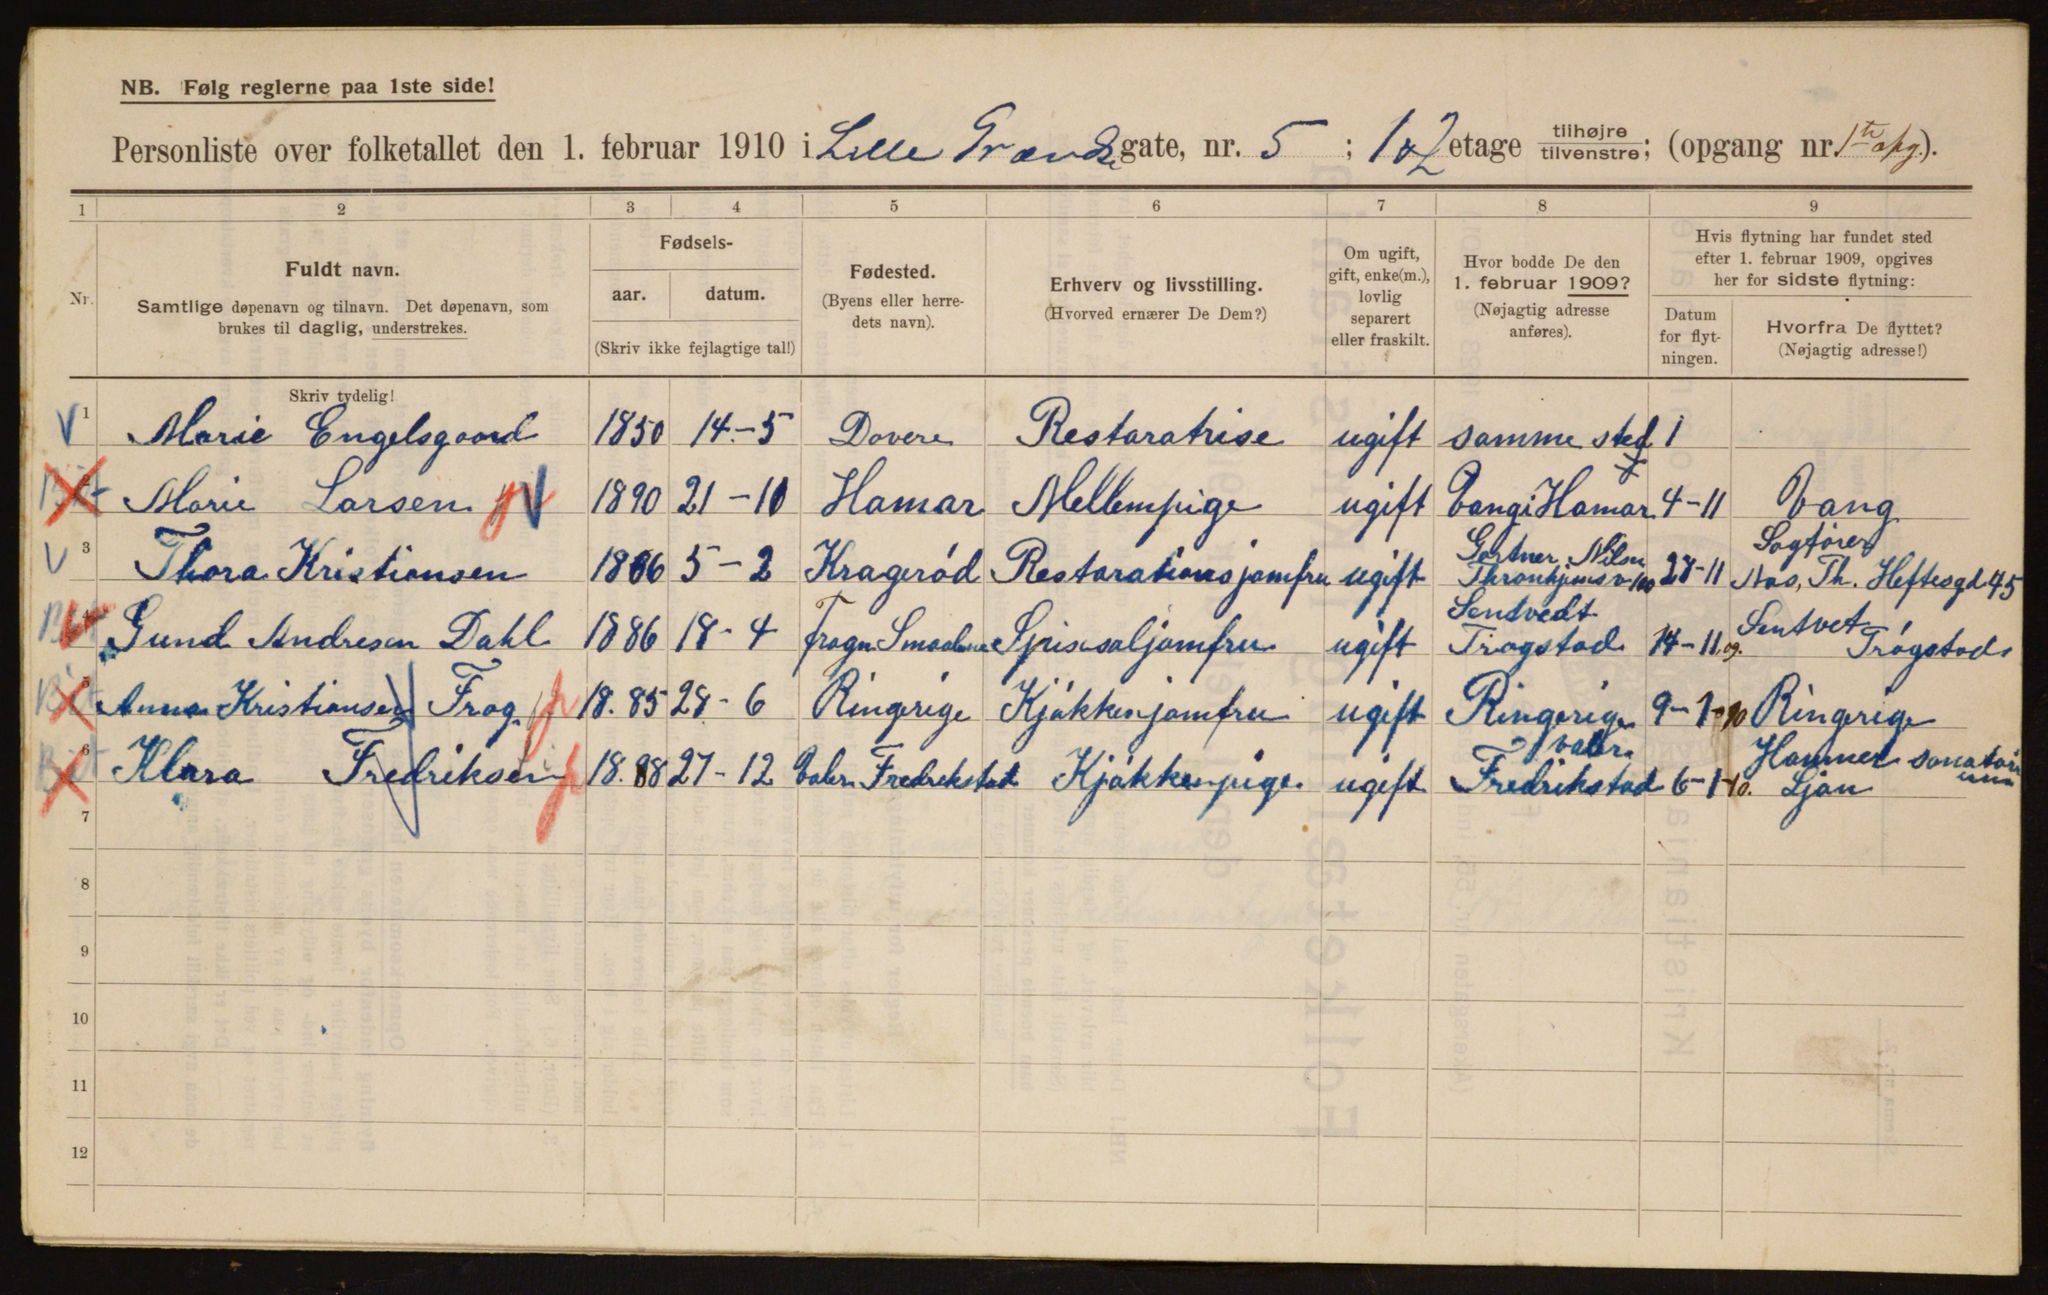 NB. Følg reglerne paa 1ste side!
Personliste over folketallet den 1. februar 1910 i Lille Grændse gate, nr. 5 ; 1 & 2 etage tilhøjre tilvenstre; (opgang nr. 1ste opg.).
1 2 3 4 5 6 7 8 9
Nr.
Fuldt navn.
Samtlige døpenavn og tilnavn. Det døpenavn, som
brukes til daglig, understrekes.
Skriv tydelig!
Fødsels-
aar. datum.
(Skriv ikke fejlagtige tal!)
Fødested.
(Byens eller herre-
dets navn).
Erhverv og livsstilling.
(Hvorved ernærer De Dem?)
Om ugift,
gift, enke(m.),
lovlig
separert
eller fraskilt.
Hvor bodde De den
1. februar 1909?
(Nøjagtig adresse
anføres).
Hvis flytning har fundet sted
efter 1. februar 1909, opgives
her for sidste flytning:
Datum
for flyt-
ningen.
Hvorfra De flyttet?
(Nøjagtig adresse!)
1 Marie Engelsgaard 1850 14-5 Dovere Restaratrise ugift samme sted
Marie Larsen 1890 21-10 Hamar Mellempige ugift Vang i Hamar 4-11 Vang
3 Thora Kristiansen 1866 5-2 Kragerød Restarationsjomfru ugift Gartner Nilsen Thronhjemsv. 100 28-11 Sagfører Aas, Th. Heftesgd 45
4 Gund Andresen Dahl 1886 18-4 Frogn Smaalene Spisesaljomfru ugift Sentvedt Trøgstad 14-11 09. Sentvet Trøgstad
5 Anna Kristiansen Frog 18.85 28-6 Ringerige Kjøkkenjomfru ugift Ringerige 9-1-10 Ringerige
6 Klara Fredriksen 18.88 27-12 Valer Fredrikstad Kjøkkenpige ugift Valer Fredrikstad 6-1-10. Hammer Ljan
7
8
9
10
11
12